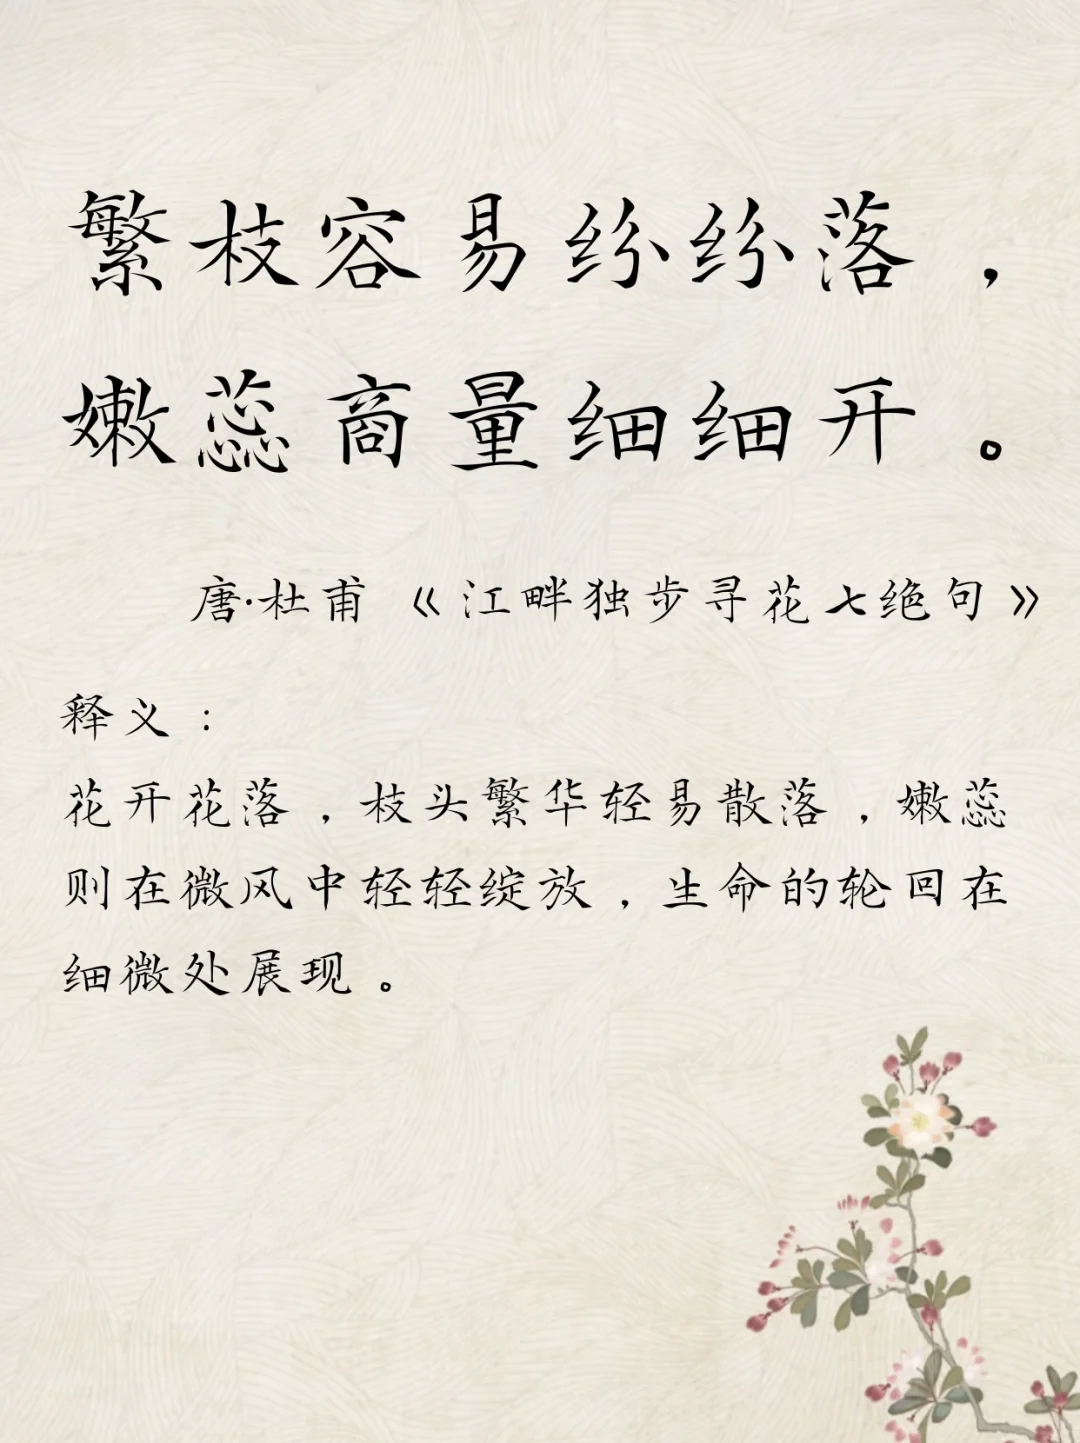 繁枝容易纷纷落，
嫩蕊商量细细开。
唐·杜甫《江畔独步寻花七绝句》
释义：
花开花落，枝头繁华轻易散落，嫩蕊
则在微风中轻轻绽放，生命的轮回在
细微处展现。